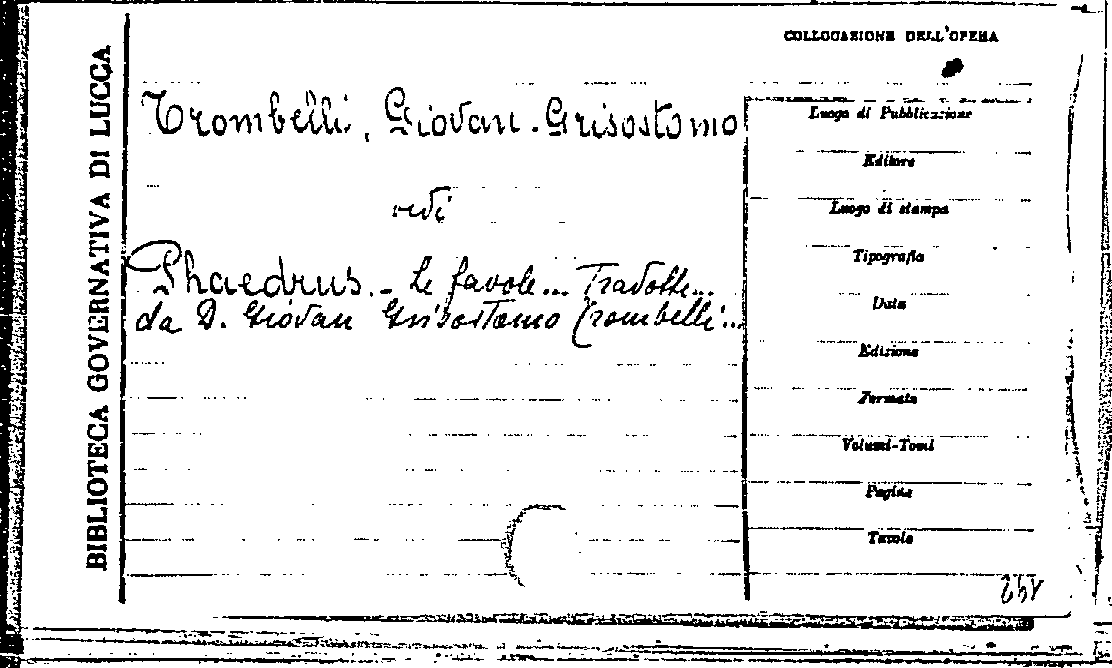 BIBLIOTECA GOVERNATIVA DI LUCCA
COLLOCAZIONE DELL'OPERA
Trombelli, Giovan-Grisostomo
vedi
Phaedrus. - Le favole... Tradotte...
da D. Giovan Grisostomo Trombelli...
Luogo di Pubblicazione
Editore
Luogo di stampa
Tipografia
Data
Edizione
Formato
Volumi-Tomi
Pagine
Tavole